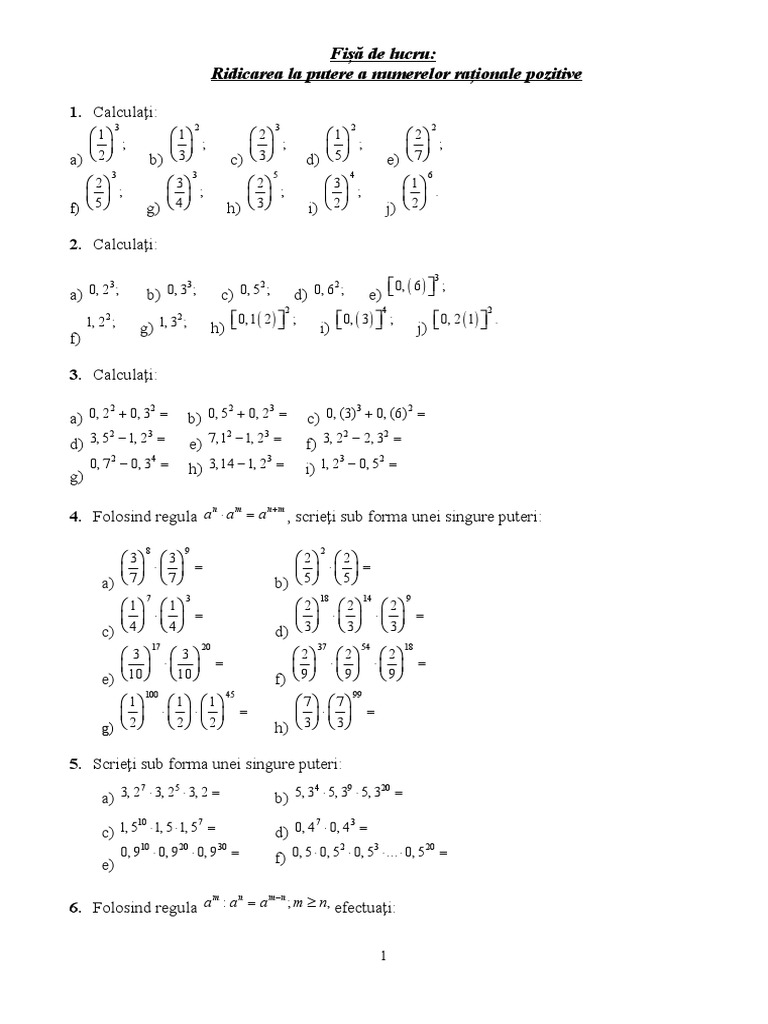 Fișă de lucru:
Ridicarea la putere a numerelor raționale pozitive
1. Calculați:
a) (1/2)³; b) (1/3)²; c) (2/3)³; d) (1/5)²; e) (2/7)²;
f) (2/5)³; g) (3/4)³; h) (2/3)⁵; i) (3/2)⁴; j) (1/2)⁶.
2. Calculați:
a) 0,2³; b) 0,3³; c) 0,5²; d) 0,6²; e) [0,(6)]³;
f) 1,2²; g) 1,3²; h) [0,1(2)]²; i) [0,(3)]⁴; j) [0,2(1)]².
3. Calculați:
a) 0,2² + 0,3² = b) 0,5² + 0,2³ = c) 0,(3)³ + 0,(6)² =
d) 3,5² − 1,2³ = e) 7,1² − 1,2³ = f) 3,2² − 2,3² =
g) 0,7² − 0,3⁴ = h) 3,14 − 1,2³ = i) 1,2³ − 0,5² =
4. Folosind regula aⁿ · aᵐ = aⁿ⁺ᵐ, scrieți sub forma unei singure puteri:
a) (3/7)⁸ · (3/7)⁹ = b) (2/5)² · (2/5) =
c) (1/4)⁷ · (1/4)³ = d) (2/3)¹⁸ · (2/3)¹⁴ · (2/3)⁹ =
e) (3/10)¹⁷ · (3/10)²⁰ = f) (2/9)³⁷ · (2/9)⁵⁴ · (2/9)¹⁸ =
g) (1/2)¹⁰⁰ · (1/2) · (1/2)⁴⁵ = h) (7/3) · (7/3)⁹⁹ =
5. Scrieți sub forma unei singure puteri:
a) 3,2⁷ · 3,2⁵ · 3,2 = b) 5,3⁴ · 5,3⁹ · 5,3²⁰ =
c) 1,5¹⁰ · 1,5 · 1,5⁷ = d) 0,4⁷ · 0,4³ =
e) 0,9¹⁰ · 0,9²⁰ · 0,9³⁰ = f) 0,5 · 0,5² · 0,5³ · ... · 0,5²⁰ =
6. Folosind regula aᵐ : aⁿ = aᵐ⁻ⁿ; m ≥ n, efectuați:
1